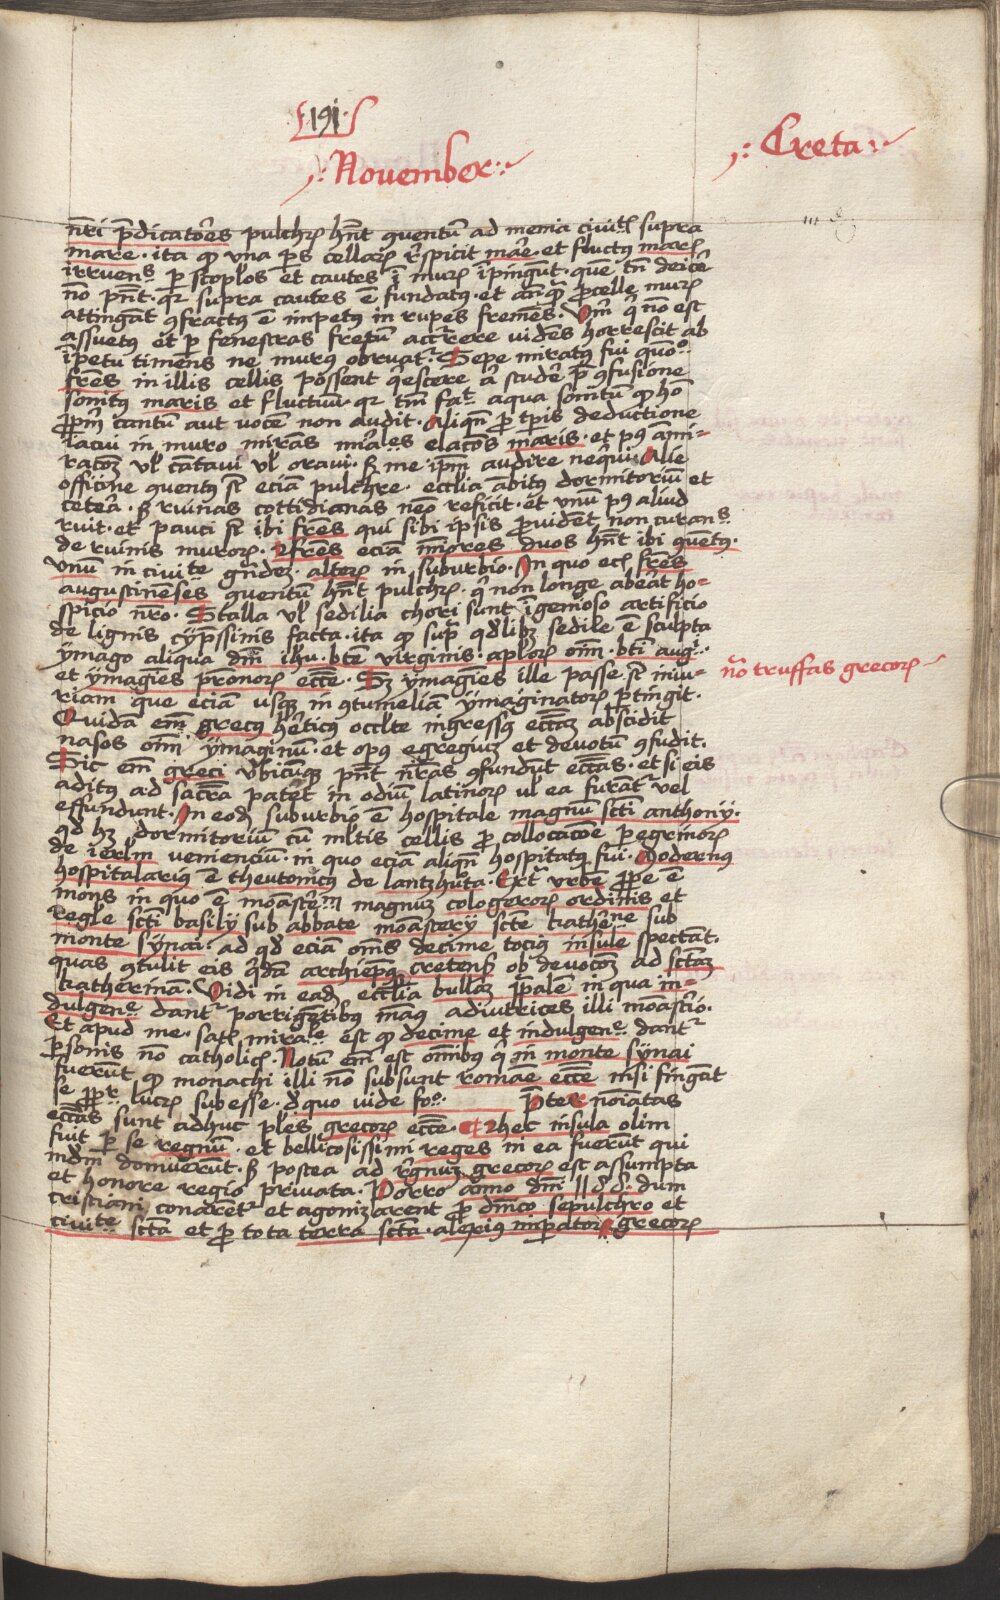 191
November
Creta
nr̄i p̄dicatōres pulchrꝝ hn̄t ꝯuentū ad menia ciuitꝭ supra
mare · ita ꝙ vna ps cellarꝝ r̄spicit mar̄e · et fluctus marꝭ
irruens ꝑ scopl̓os et cautes ī murꝝ īpingūt · quē tn̄ deic̄e
nō pn̄t · qꝛ supra cautes ē fundatꝰ · et an̄qꝫ ꝓcelle murꝝ
attingāt ꝯfractꝰ ē impetꝰ in rupes fremēs · Vn̄ qͥ nō est
assuetus et ꝑ fenestras fretū accurrere vidēs horrescit ab
īpetu timēns ne murꝰ obruatᷣ · Sepe miratꝰ fui quōº
frēs in illis cellis possent qͥescere aͨ studēr p̄ ꝯfusione
sonitꝰ maris et fluctuū · qꝛ tm̄ fac̄ aqua sonitū ꝙ hō
ꝓpriū cantum aut vocē non audit · Aliqn̄ ꝓ tꝑis deductione
iacui in muro mirans mirales elacōes maris · et pꝰ am̄i-
racoꝫ vl̓ cantaui vl̓ oraui · sꝫ me ip̄m audire nequii · Alie
officine ꝯuentꝰ st̄ eciā pulchre · eccl̓ia ābitꝰ dormitoriū et
cetera · sꝫ ruinas cottidianas nēo reficit · et vnū pꝰ aliud
ruit · et pauci st̄ ibi frēs qui sibi ipsis ꝓuidēt non curans
de ruinis murorꝝ · Frēs eciā mīores duos hn̄t ibi ꝯuentꝰ ·
vnū in ciuitate grādeꝫ · alterꝝ in suburbio · In quo ecī frēs
augustinēses ꝯuentū hn̄t pulchrꝝ · qͥ non longe abeāt ho-
spicio nr̄o · Stalla vl̓ sedilia chori sunt īgenioso artificio
de lignis cyp̄ssinis facta · ita ꝙ suꝑ qd̓libꝫ sedile ē sculpta
ymago aliqua dn̄i ih̄u · bt̄e virginis · apl̓orꝝ om̄ · bt̄i aug̃ ·
et ymagīes prōnorꝝ ecc̄e · Sꝫ ymagīes ille passe st̄ iniu-
nō truffas grecorꝝ
riam que eciā usqꝫ in ꝯtumeliā ymaginatorꝝ ꝑtingit ·
Quidā em̄ grecꝰ hēticꝰ occl̓te ingressꝰ ecc̄aꝫ abscidit
nasos om̄ ymaginū · et opꝰ egregiuꝫ et deuotū ꝯfudit ·
Sic em̄ greci vbicūqꝫ pn̄t nr̄as ꝯfundūt ecc̄as · et si eis
aditus ad sacr̄a patet in odiū latinorꝝ vl̓ ea furātᷣ vel
effundunt · In eodē suburbio ē hospitale magnū sct̄i anthonij ·
qd̓ hꝫ dormitoriū cū ml̓tis cellis ꝓ collocacōe ꝑegrinorꝝ
de ierl̓m veniencium · in quo eciā aliqn̄ hospitatꝰ fui · Modernꝰ
hospitalarius ē theutonicus de lantzhuta · Ext̄ vrbē ꝓpe ē
mons in quo ē moastēriū magnuꝫ cologerorꝝ ordinis et
regle sct̄i basilij sub abbate moasterij sct̄e katherine sub
monte synai · ad qd̓ eciā om̄s decime tociꝰ insule spectāt ·
quas ꝯtulit eis qͥdā archiep̄us cretenꝭ ob deuocōꝫ ad sct̄aꝫ
katherinā · Vidi in eadē eccl̓ia bullaꝫ pp̄alē in qua in-
dulgene dantᷣ porrigētibꝰ manꝰ adiutrices illi moast̄io ·
Et apud me · satꝭ mirale est ꝙ decime et indulgene dantᷣ
ꝑsonis nō catholicꝭ · Notū em̄ est om̄ibus qͥ in monte synai
fuerūt ꝙ monachi illi nō subsunt romāe ecc̄e nisi fingāt
se ꝓpt̄ lucrꝝ subesse · de quo vide foº p̄ter noīatas
ecc̄as sunt adhuc pl̓es grecorꝝ ecc̄e · Hec insula olim
fuit ꝑ se regnū · et bellicosissimi reges in ea fuerūt qui
mdm̄ domuerūt · sꝫ postea ad r̄gnuꝫ grecorꝝ est assumpta
et honore regio priuata · Porro anno dn̄i 1188 · dum
cristiani conarētᷣ et agonizarent ꝓ dm̄co sepulchro et
ciuitate sct̄a et ꝓ tota terra sct̄a · alexius imꝑator grecorꝝ